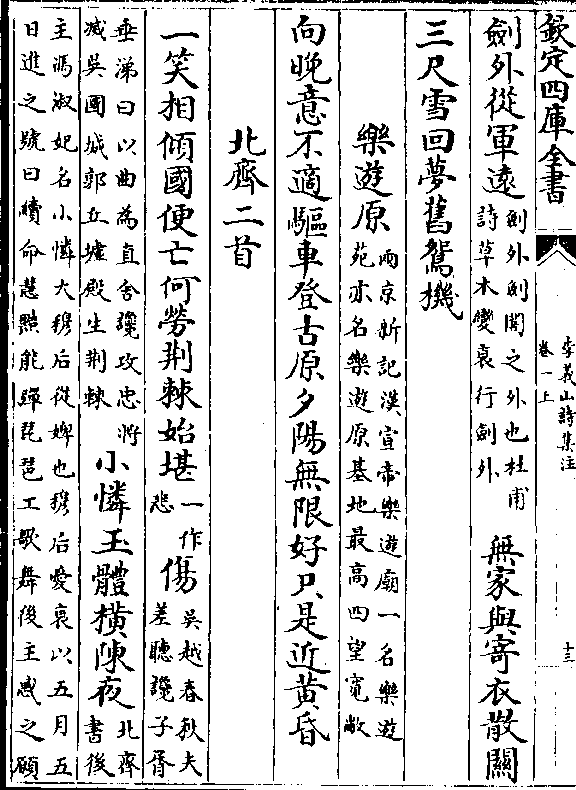 欽定四庫全書
李義山詩集注
卷一上
十三
劒外從軍遠劍外劍閣之外也杜甫詩草木變衰行劍外無家與寄衣散關
三尺雪回夢舊鴛機
樂遊原兩京新記漢宣帝樂遊廟一名樂遊苑亦名樂遊原基地最高四望寛敞
向晩意不適驅車登古原夕陽無限好只是近黄昏
北齊二首
一笑相傾國便亡何勞荆棘始堪一作悲傷吴越春秋夫差聽讒子胥
垂涕曰以曲為直舍讒攻忠將滅吳國城郭丘墟殿生荆棘小憐玉體橫陳夜北齊書後
主馮淑妃名小憐大穆后從婢也穆后愛衰以五月五
日進之號曰續命慧黠能彈琵琶工歌舞後主惑之願